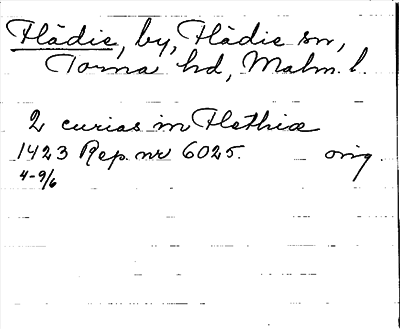 Flädie, by, Flädie sn,
Torna hd, Malm. l.
2 curias in Flethiæ
1423 Rep. nr 6025. orig.
4-9/6